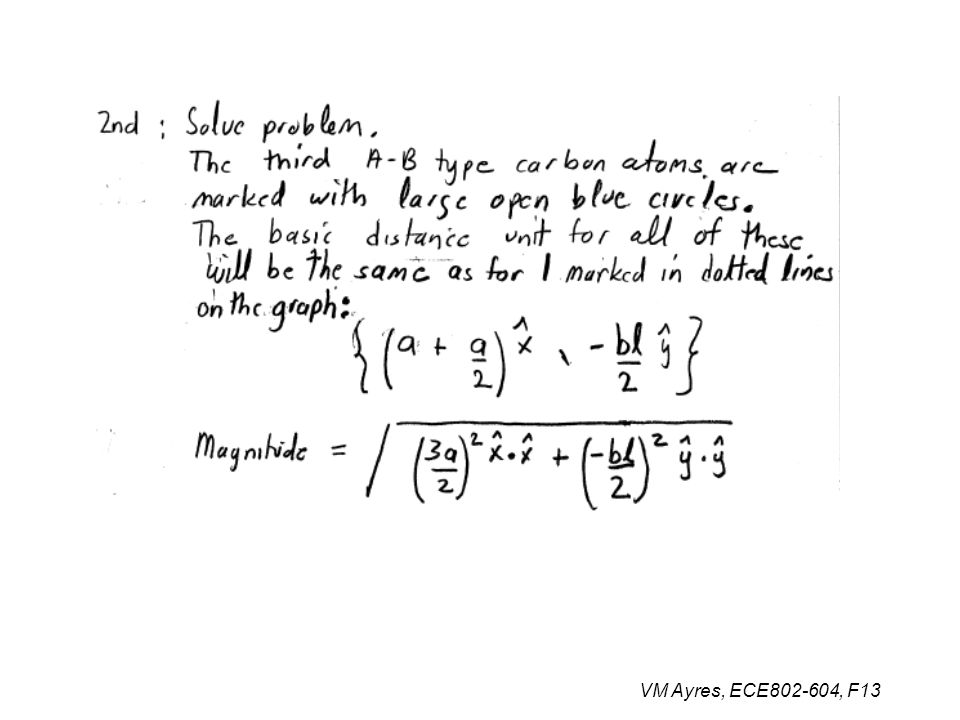 2nd : Solve problem.
The third A-B type carbon atoms are
marked with large open blue circles.
The basic distance unit for all of these
will be the same as for 1 marked in dotted lines
on the graph:
{(a + a/2) x̂ , - bl/2 ŷ}
Magnitude = √((3a/2)² x̂·x̂ + (-bl/2)² ŷ·ŷ)
VM Ayres, ECE802-604, F13